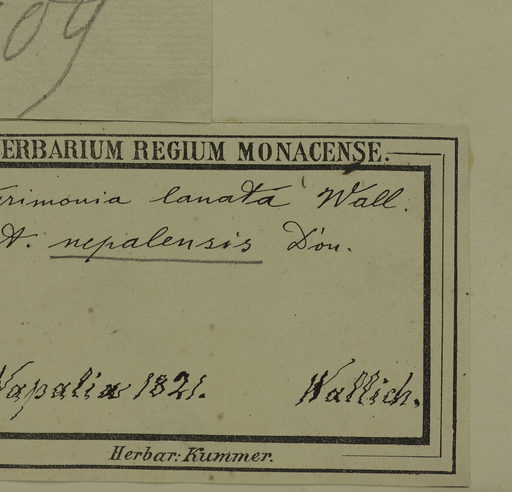 09
ERBARIUM REGIUM MONACENSE.
rimonia lanata Wall.
A. nepalensis Don.
Napalia 1821. Wallich.
Herbar: Kummer.